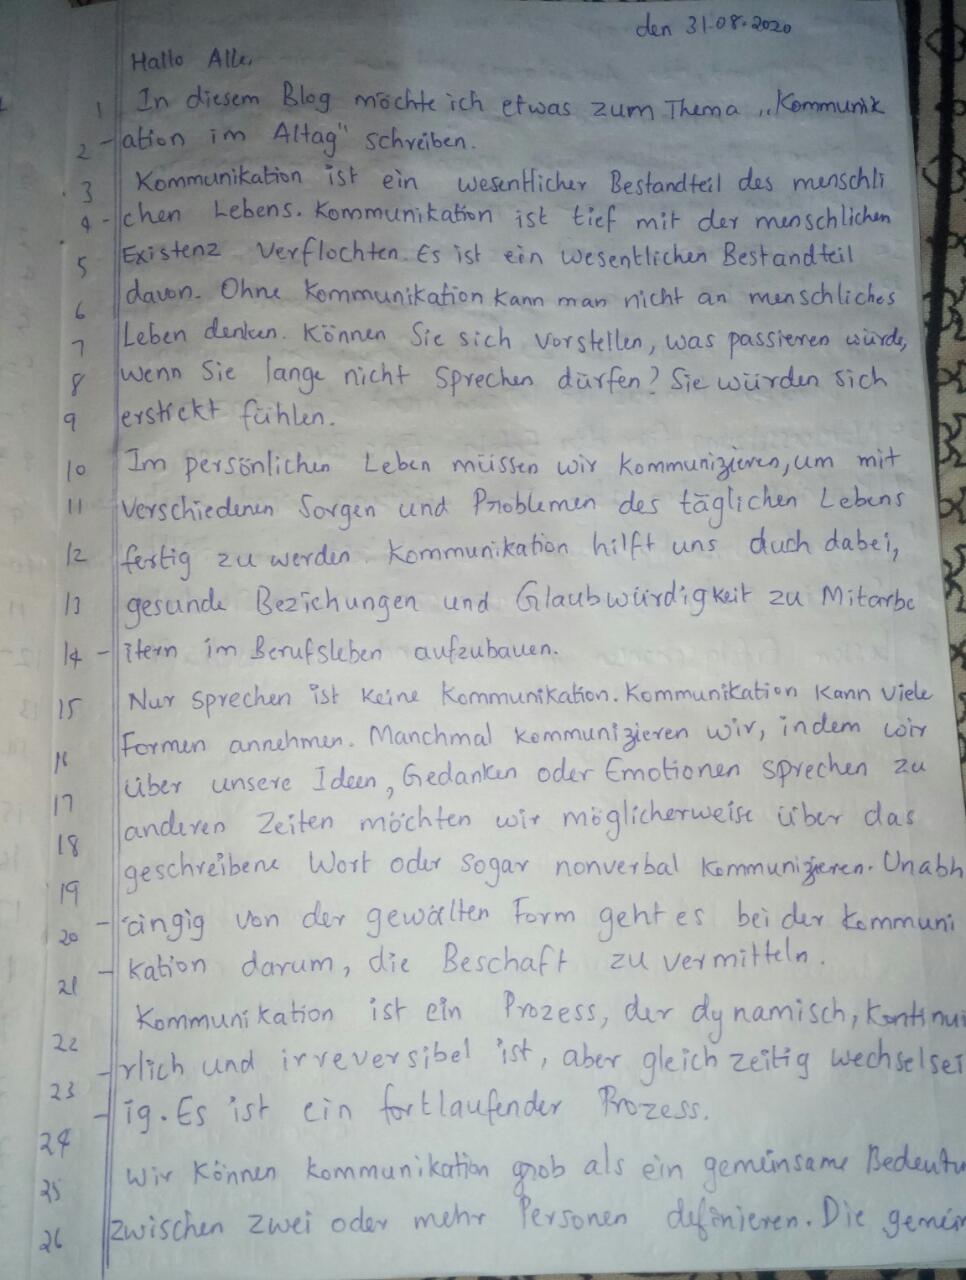 den 31.08.2020
Hallo Alle,
1 In diesem Blog möchte ich etwas zum Thema ,,Kommunik
2 -ation im Altag" schreiben.
3 Kommunikation ist ein wesentlicher Bestandteil des menschli
4 -chen Lebens. Kommunikation ist tief mit der menschlichen
5 Existenz verflochten. Es ist ein wesentlichen Bestandteil
6 davon. Ohne Kommunikation kann man nicht an menschliches
7 Leben denken. Können Sie sich vorstellen, was passieren würde,
8 wenn Sie lange nicht sprechen dürfen? Sie würden sich
9 erstickt fühlen.
10 Im persönlichen Leben müssen wir kommunizieren, um mit
11 verschiedenen Sorgen und Problemen des täglichen Lebens
12 fertig zu werden. Kommunikation hilft uns duch dabei,
13 gesunde Beziehungen und Glaubwürdigkeit zu Mitarbe
14 -itern im Berufsleben aufzubauen.
15 Nur sprechen ist keine Kommunikation. Kommunikation kann viele
16 Formen annehmen. Manchmal kommunizieren wir, indem wir
17 über unsere Ideen, Gedanken oder Emotionen sprechen zu
18 anderen Zeiten möchten wir möglicherweise über das
19 geschreibene Wort oder sogar nonverbal kommunizieren. Unabh
20 -ängig von der gewälten Form geht es bei der Kommuni
21 -kation darum, die Beschaft zu vermitteln.
22 Kommunikation ist ein Prozess, der dynamisch, kontinui
23 -rlich und irreversibel ist, aber gleichzeitig wechselsei
24 -ig. Es ist ein fortlaufender Prozess.
25 Wir können kommunikation grob als ein gemeinsame Bedeutu
26 zwischen zwei oder mehr Personen definieren. Die gemein